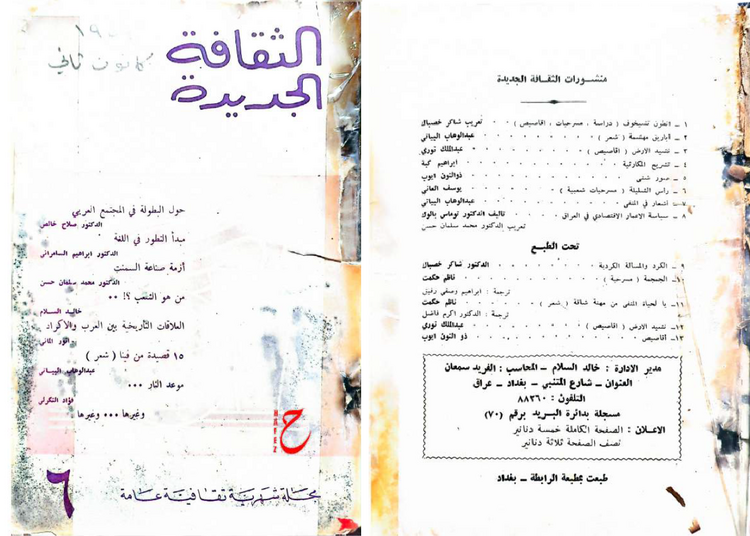 كانون ثاني
الثقافة
الجديدة
حول البطولة في المجتمع العربي
الدكتور صلاح خالص
مبدأ التطور في اللغة
الدكتور ابراهيم السامرائي
أزمة صناعة السمنت
الدكتور محمد سلمان حسن
من هو الشعب ؟! ..
خالد السلام
العلاقات التأريخية بين العرب والأكراد
١٥ قصيدة من فينا ( شعر )
عبدالوهاب البياتي
موعد النار ...
فؤاد التكرلي
وغيرها ... وغيرها
ح
HAFEZ
٦
مجلة شهرية ثقافية عامة
منشورات الثقافة الجديدة
١ ــ انطون تشيخوف ( دراسة ، مسرحيات ، اقاصيص ) ٠ ٠ تعريب شاكر خصباك
٢ ــ اباريق مهشمة ( شعر ) ٠ ٠ ٠ ٠ عبدالوهاب البياتي
٣ ــ نشيد الارض ( اقاصيص ) ٠ ٠ ٠ ٠ عبدالملك نوري
٤ ــ تشريح المكارثية ٠ ٠ ٠ ٠ ابراهيم كبة
٥ ــ صور شتى ٠ ٠ ٠ ٠ ذوالنون ايوب
٦ ــ راس الشليلة ( مسرحيات شعبية ) ٠ ٠ ٠ يوسف العاني
٧ ــ اشعار في المنفى ٠ ٠ ٠ ٠ عبدالوهاب البياتي
٨ ــ سياسة الاعمار الاقتصادي في العراق ٠ ٠ تأليف الدكتور توماس بالوك
تعريب الدكتور محمد سلمان حسن
تحت الطبع
٩ ــ الكرد والمسالة الكردية ٠ ٠ ٠ الدكتور شاكر خصباك
١٠ــ الجمجمة ( مسرحية ) ٠ ٠ ٠ ناظم حكمت
ترجمة : ابراهيم وصفي رفيق
١١ــ يا لحياة المنفى من مهنة شاقة ( شعر ) ٠ ٠ ناظم حكمت
ترجمة : الدكتور اكرم فاضل
١٢ــ نشيد الارض ( اقاصيص ) ٠ ٠ ٠ عبدالملك نوري
١٣ــ اقاصيص ٠ ٠ ٠ ذو النون ايوب
مدير الادارة : خالد السلام ــ المحاسب : الفريد سمعان
العنوان ــ شارع المتنبي ــ بغداد ــ عراق
التلفون : ٨٨٣٦٠
مسجلة بدائرة البريد برقم (٧٠)
الاعلان : الصفحة الكاملة خمسة دنانير
نصف الصفحة ثلاثة دنانير
طبعت بمطبعة الرابطة ــ بغداد